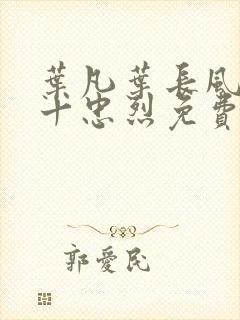 葉凡葉長風
十忠烈免費
郭愛民